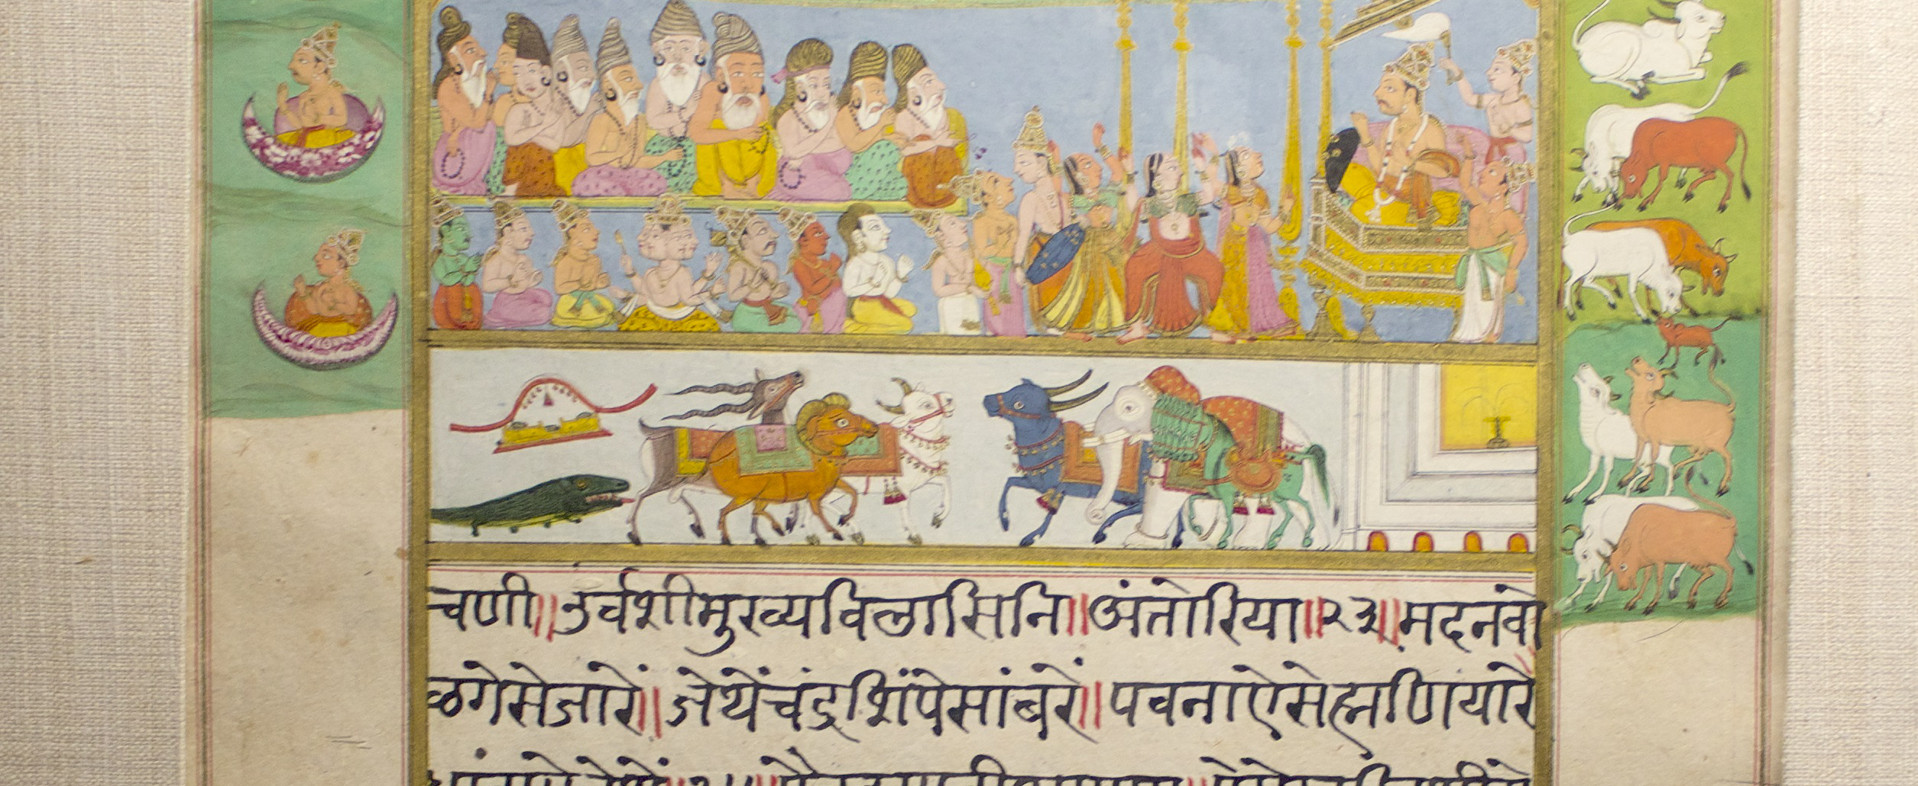 चणी॥उर्वशीमुख्यविलासिनि॥अंतोरिया॥२३॥मदनवो
ळगेसेजारें॥जेथेंचंद्रशिंपेसांबरें॥पवनाऐसेह्मणियारे